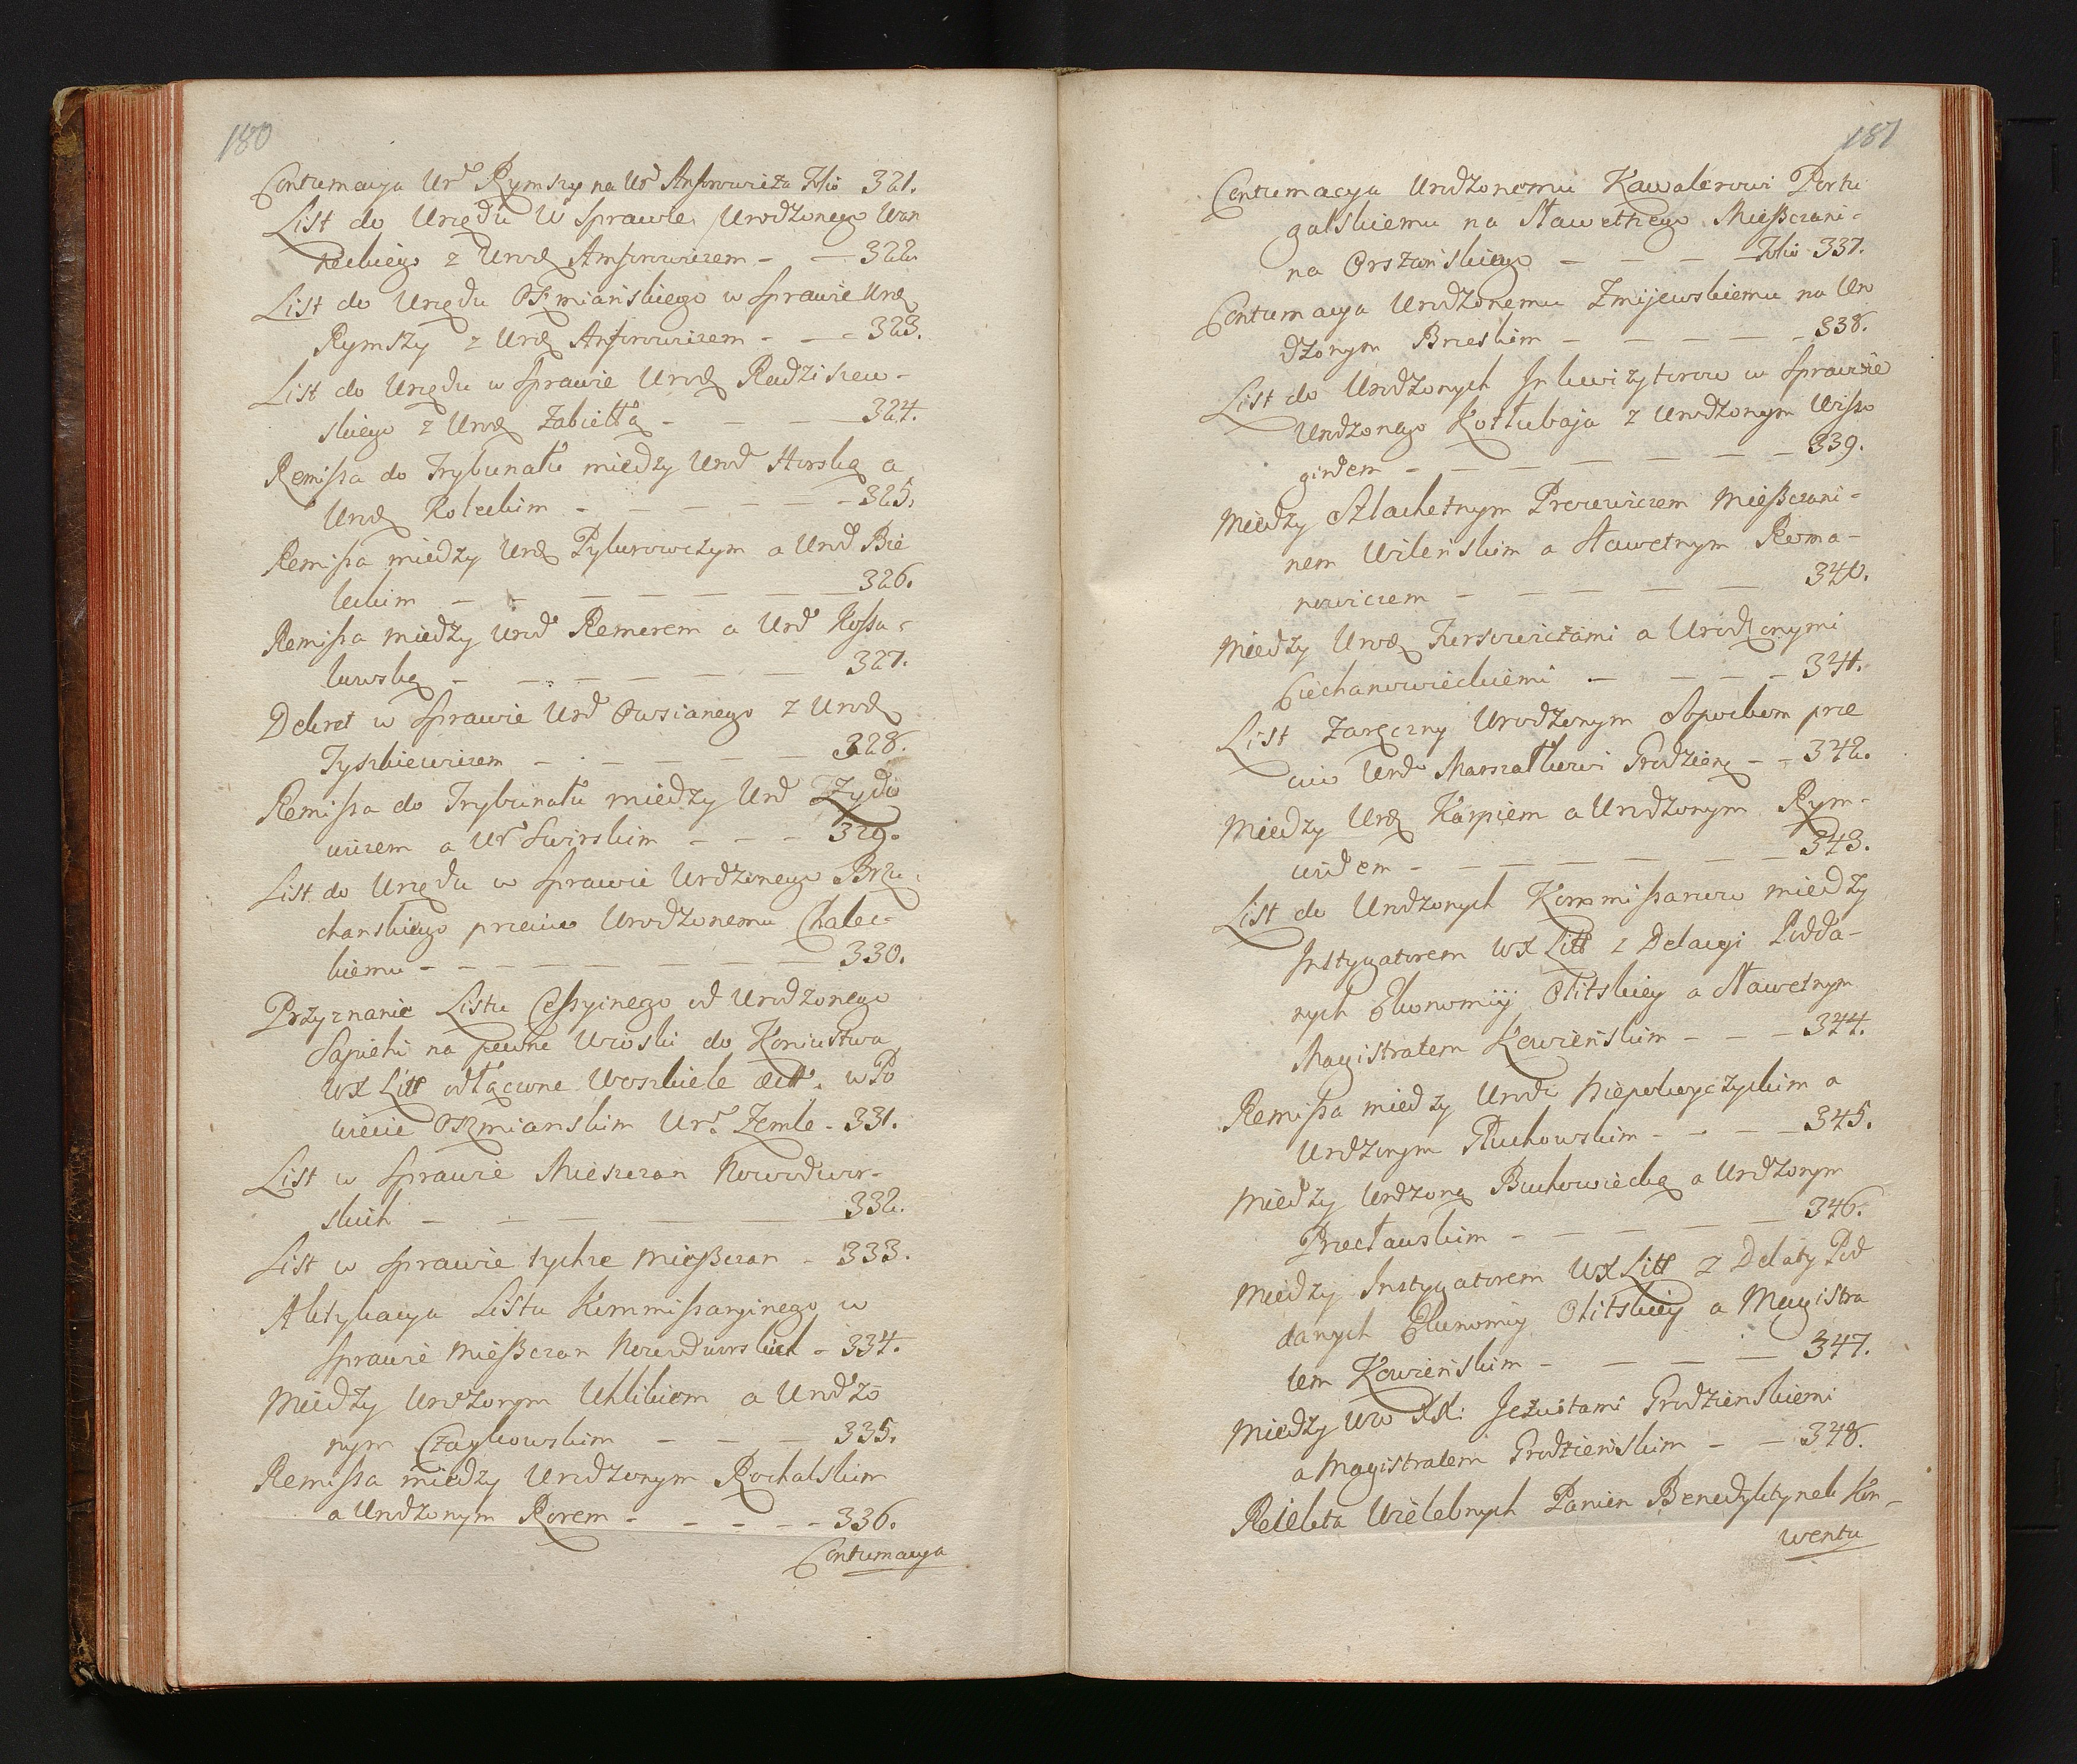 180
Contumacya Ur Rymszy na Ur Anforowicza Folio 321.
List do Urzędu W Sprawie Urodzonego Wan
kechiego z Urodz Anforowiczem - - 322.
List do Urzędu Oszmiańskiego w Sprawie Urodz
Rymszy z Urodz Anforowiczem - - - 323.
List do Urzędu w Sprawie Urodz Radziszew-
skiego z Urodz Zabiełłą - - - 324.
Remissa do Trybunału między Urod Horską a
Urodz Koleckim - - - - - 325.
Remissa między Urodz Pyłurowczym a Urod Bie
leckim - - - - - - 326.
Remissa między Urod Remerem a Urod Kossa-
kowską - - - - - - 327.
Dekret w Sprawie Urod Owsianego z Urodz
Tyszkiewiczem - - - - - 328.
Remissa do Trybunału między Urd Zydo
wiczem a Ur Swirskim - - - 329.
List do Urzędu w Sprawie Urdzonego Brzu-
chanskiego przeciwo Urodzonemu Chalec-
kiemu - - - - - - - 330.
Przyznanie Listu Cessyinego od Urodzonego
Sapiehi na pewne Wioski do Koniustwa
WX Litt odłączone Woszkiele dict. w Po
wiecie Oszmianskim Ur. Zemle - 331.
List w Sprawie Mieszczan Nowodwor-
skich - - - - - 332.
List w Sprawie tychże Mießczan - 333.
Aktykacya Listu Kommissaryinego w
Sprawie Mießczan Nowodworskich - 334.
Między Urodzonym Uhlikiem a Urodzo
nym Czaykowskim - - - 335.
Remissa między Urodzonym Rochalskim
a Urodzonym Korem - - - - 336.
Contumacya
181
Contumacya Urodzonemu Kawalerowi Portu
galskiemu na Sławetnego Mießczani-
na Orszańskiego - - - Folio 337.
Contumacya Urodzonemu Zmijewskiemu na Uro
dzonym Brzeskim - - - - - 338.
List do Urodzonych Inkwizytorow w Sprawie
Urodzonego Kotłubaja z Urodzonym Wisso
girdem - - - - - - 339.
Między Szlachetnym Prerewiczem Mießczani-
nem Wileńskim a Sławetnym Roma-
nowiczem - - - - - 340.
Między Urodz Furssewiczami a Urodzonymi
Ciechanowieckiemi - - - - 341.
List Zaręczny Urodzonym Sopockom prze
ciw Urodz Marszałkowi Grodzieńs - - 342.
Między Urodz Karpiem a Urodzonym Rym-
widem - - - - - - 343.
List do Urodzonych Kommissarow między
Instygatorem WX Litt z Delacyi Podda-
nych Ekonomiy Olitskiey a Sławetnym
Magistratem Kowieńskim - - - 344.
Remissa między Urodz Niepokoyczyckim a
Urdzonym Głuchowskim - - - - 345.
Między Urdzoną Buchowiecką a Urdzonym
Przecławskim - - - - - 346.
Między Instygatorem WX Litt z Delaty Pod
danych Ekonomiy Olitskiey a Magistra
tem Kowieńskim - - - - - 347.
Między Ww XX: Jezuitami Grodzienskiemi
a Magistratem Grodzieńskim - - 348.
Relekta Wielebnych Panien Benedyktynek Kon-
wentu